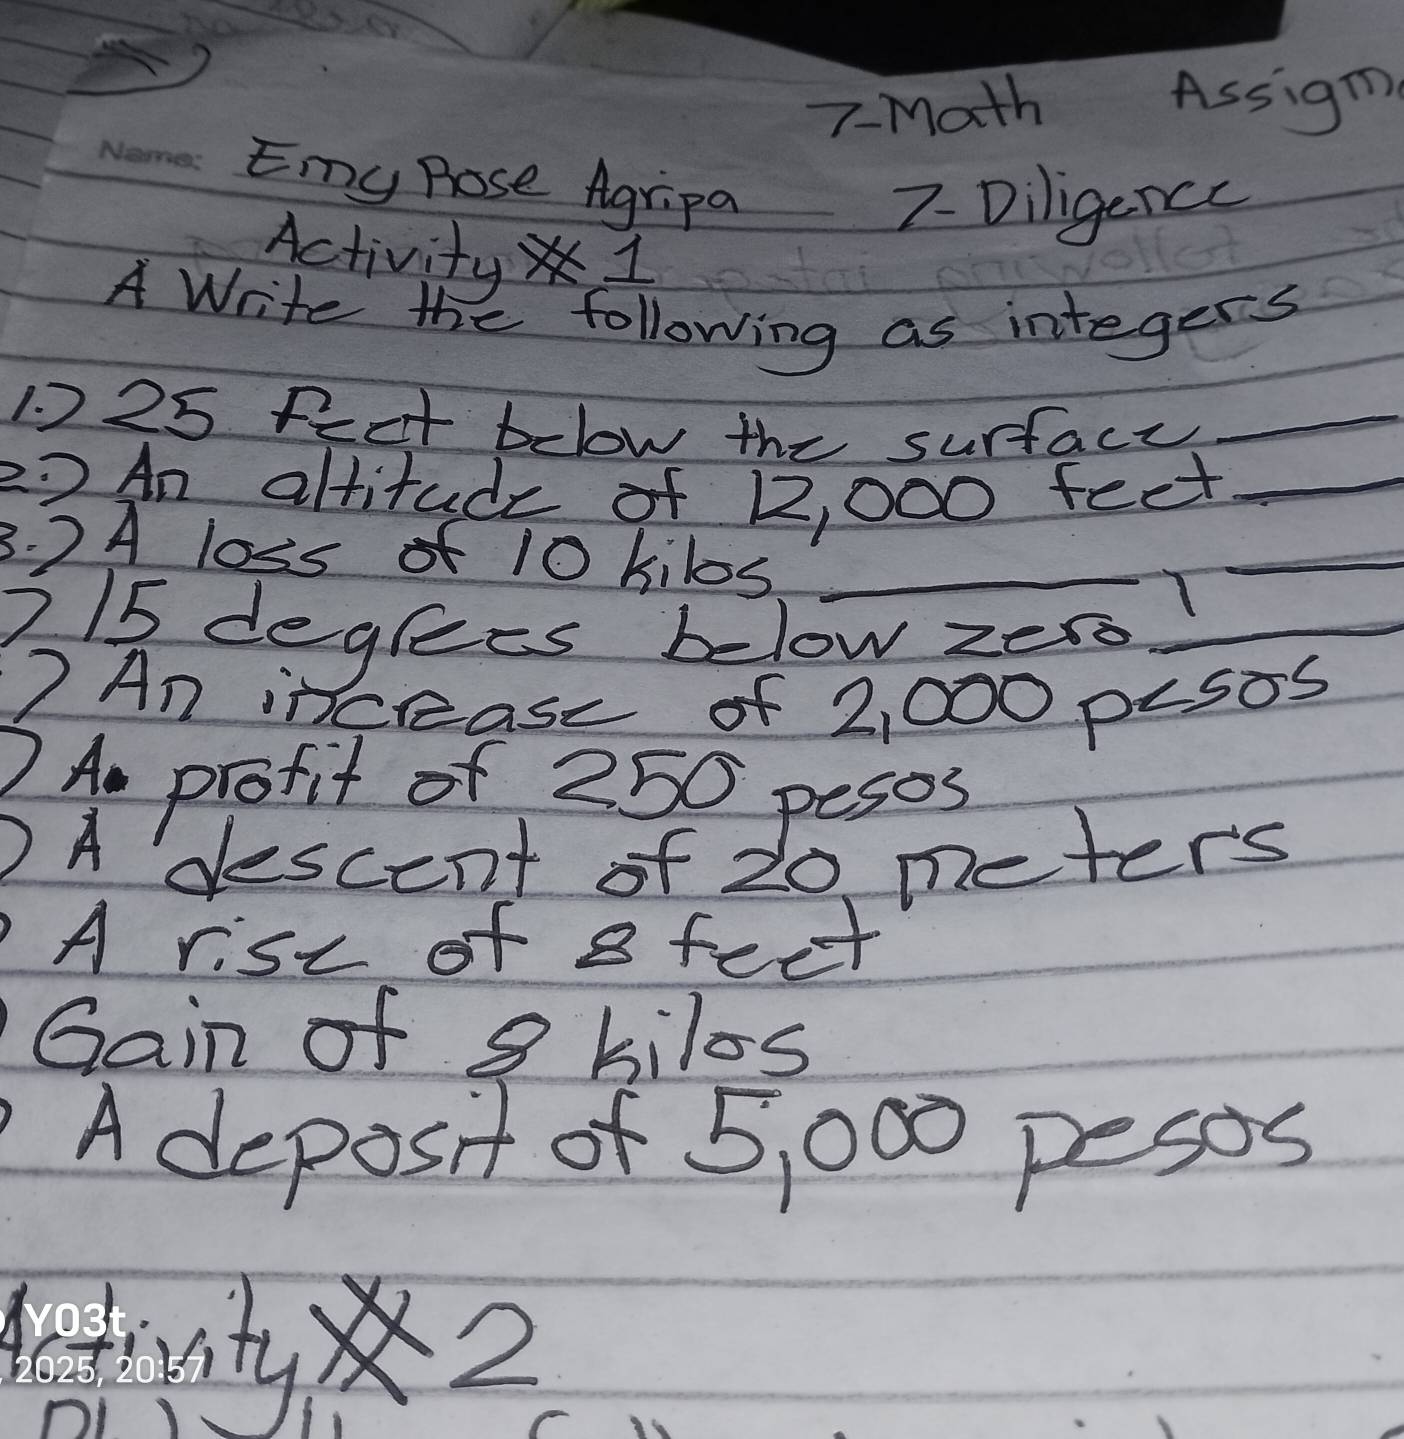 7-Math Assignm
Name: Emy Rose Agripa 7-Diligence
Activity # 1
A Write the following as integers
1.) 25 Feet below the surface
2.) An altitude of 12,000 feet
3.) A loss of 10 kilos
) 15 degrees below zero
) An increase of 2,000 pesos
) A profit of 250 pesos
) A descent of 20 meters
) A rise of 8 feet
) Gain of 8 kilos
) A deposit of 5,000 pesos
Activity # 2
Y03t
2025, 20:57